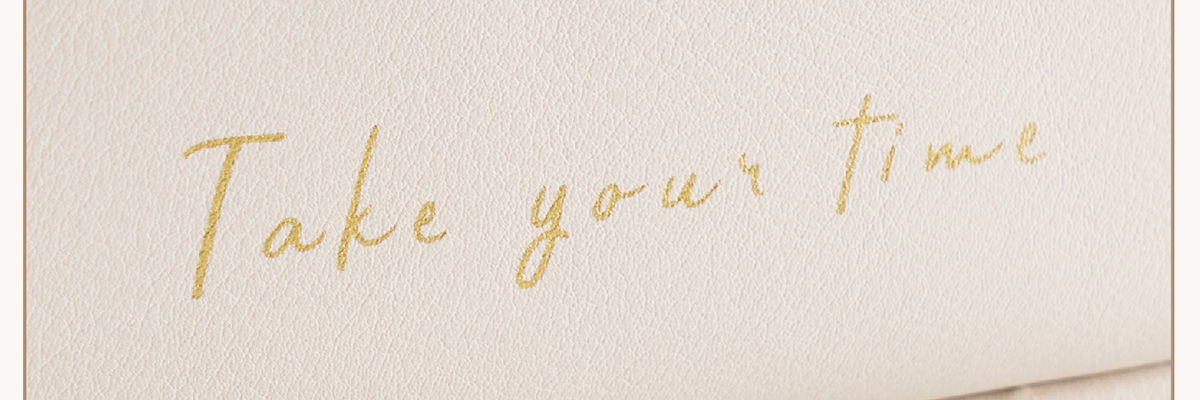 Take your time